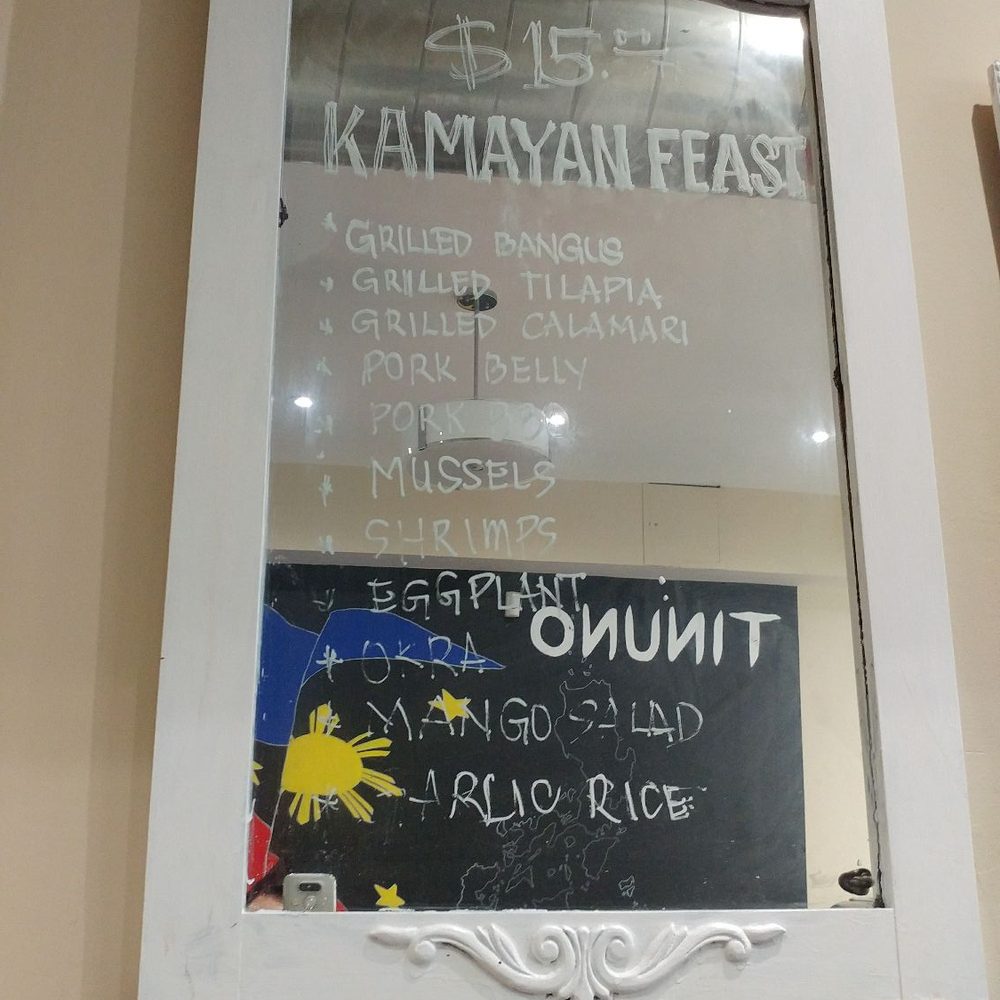 $15.00
KAMAYAN FEAST
* GRILLED BANGUS
* GRILLED TILAPIA
* GRILLED CALAMARI
* PORK BELLY
* PORK BBQ
* MUSSELS
* SHRIMPS
* EGGPLANT
TINUNO
* OKRA
* MANGO SALAD
* GARLIC RICE